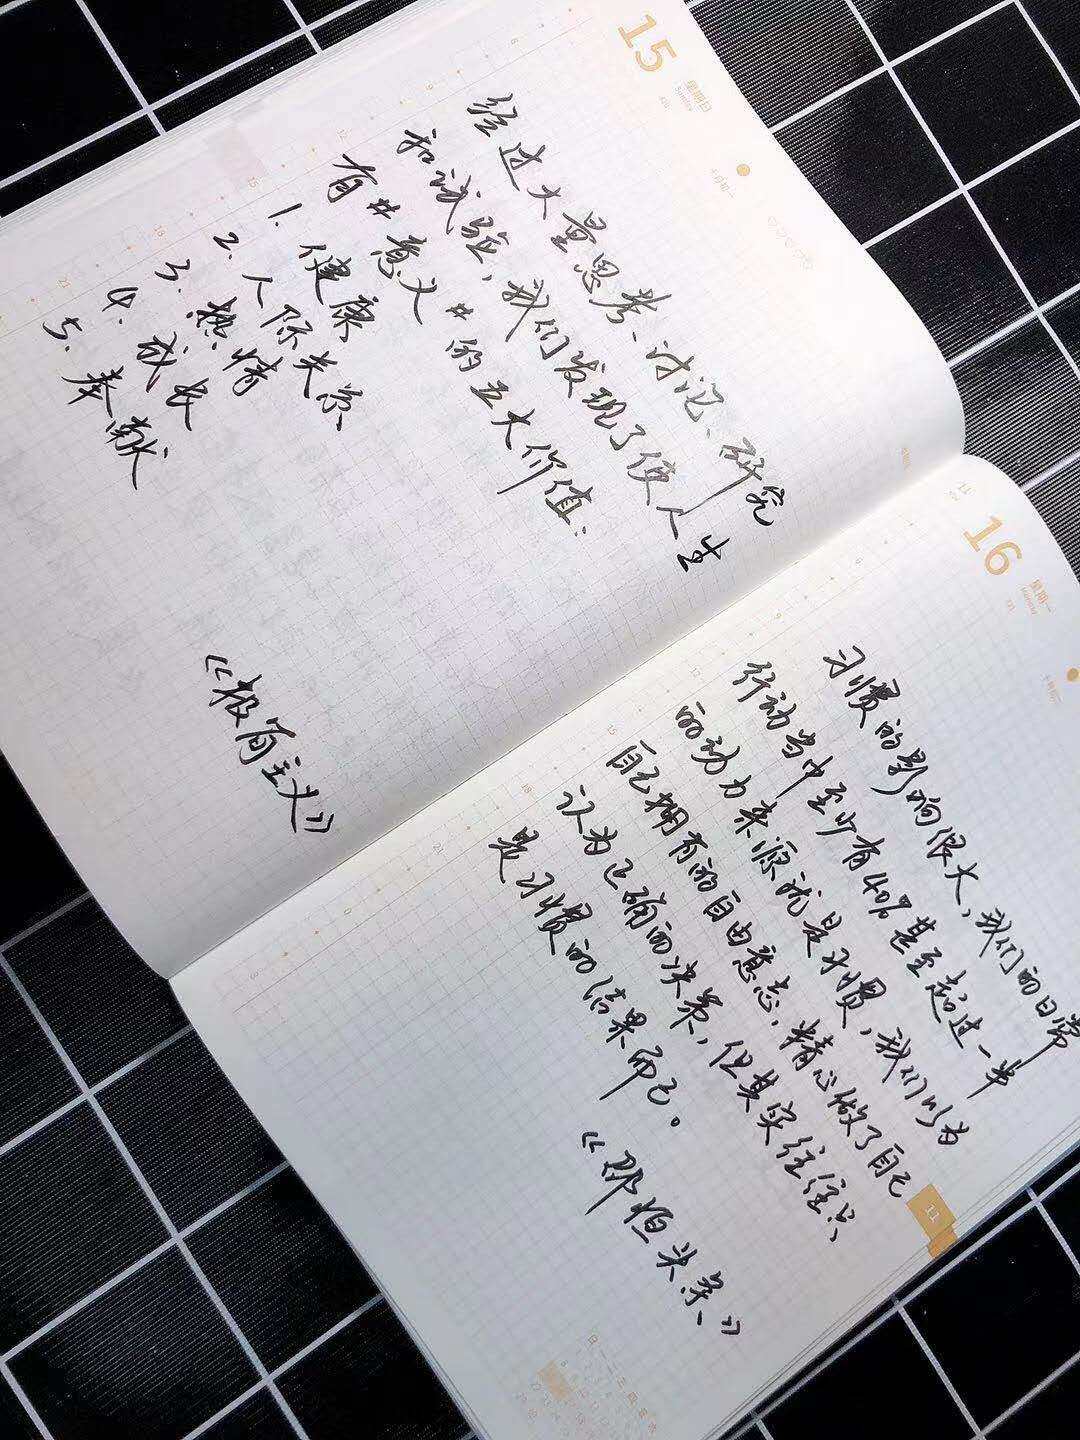 15
星期日
Sunday
十月初一
6
9
12
15
18
21
经过大量思考、讨论、研究
和试验,我们发现了使人生
有#意义#的五大价值:
1. 健康
2. 人际关系
3. 热情
4. 成长
5. 奉献
《极简主义》
11
16
星期一
Monday
321
6
9
12
15
18
21
习惯的影响很大,我们的日常
行动当中至少有40%甚至超过一半
的动力来源就是习惯,我们以为
自己拥有的自由意志,精心做了自己
认为正确的决策,但其实往往只
是习惯的结果而已。
《邵恒头条》
11